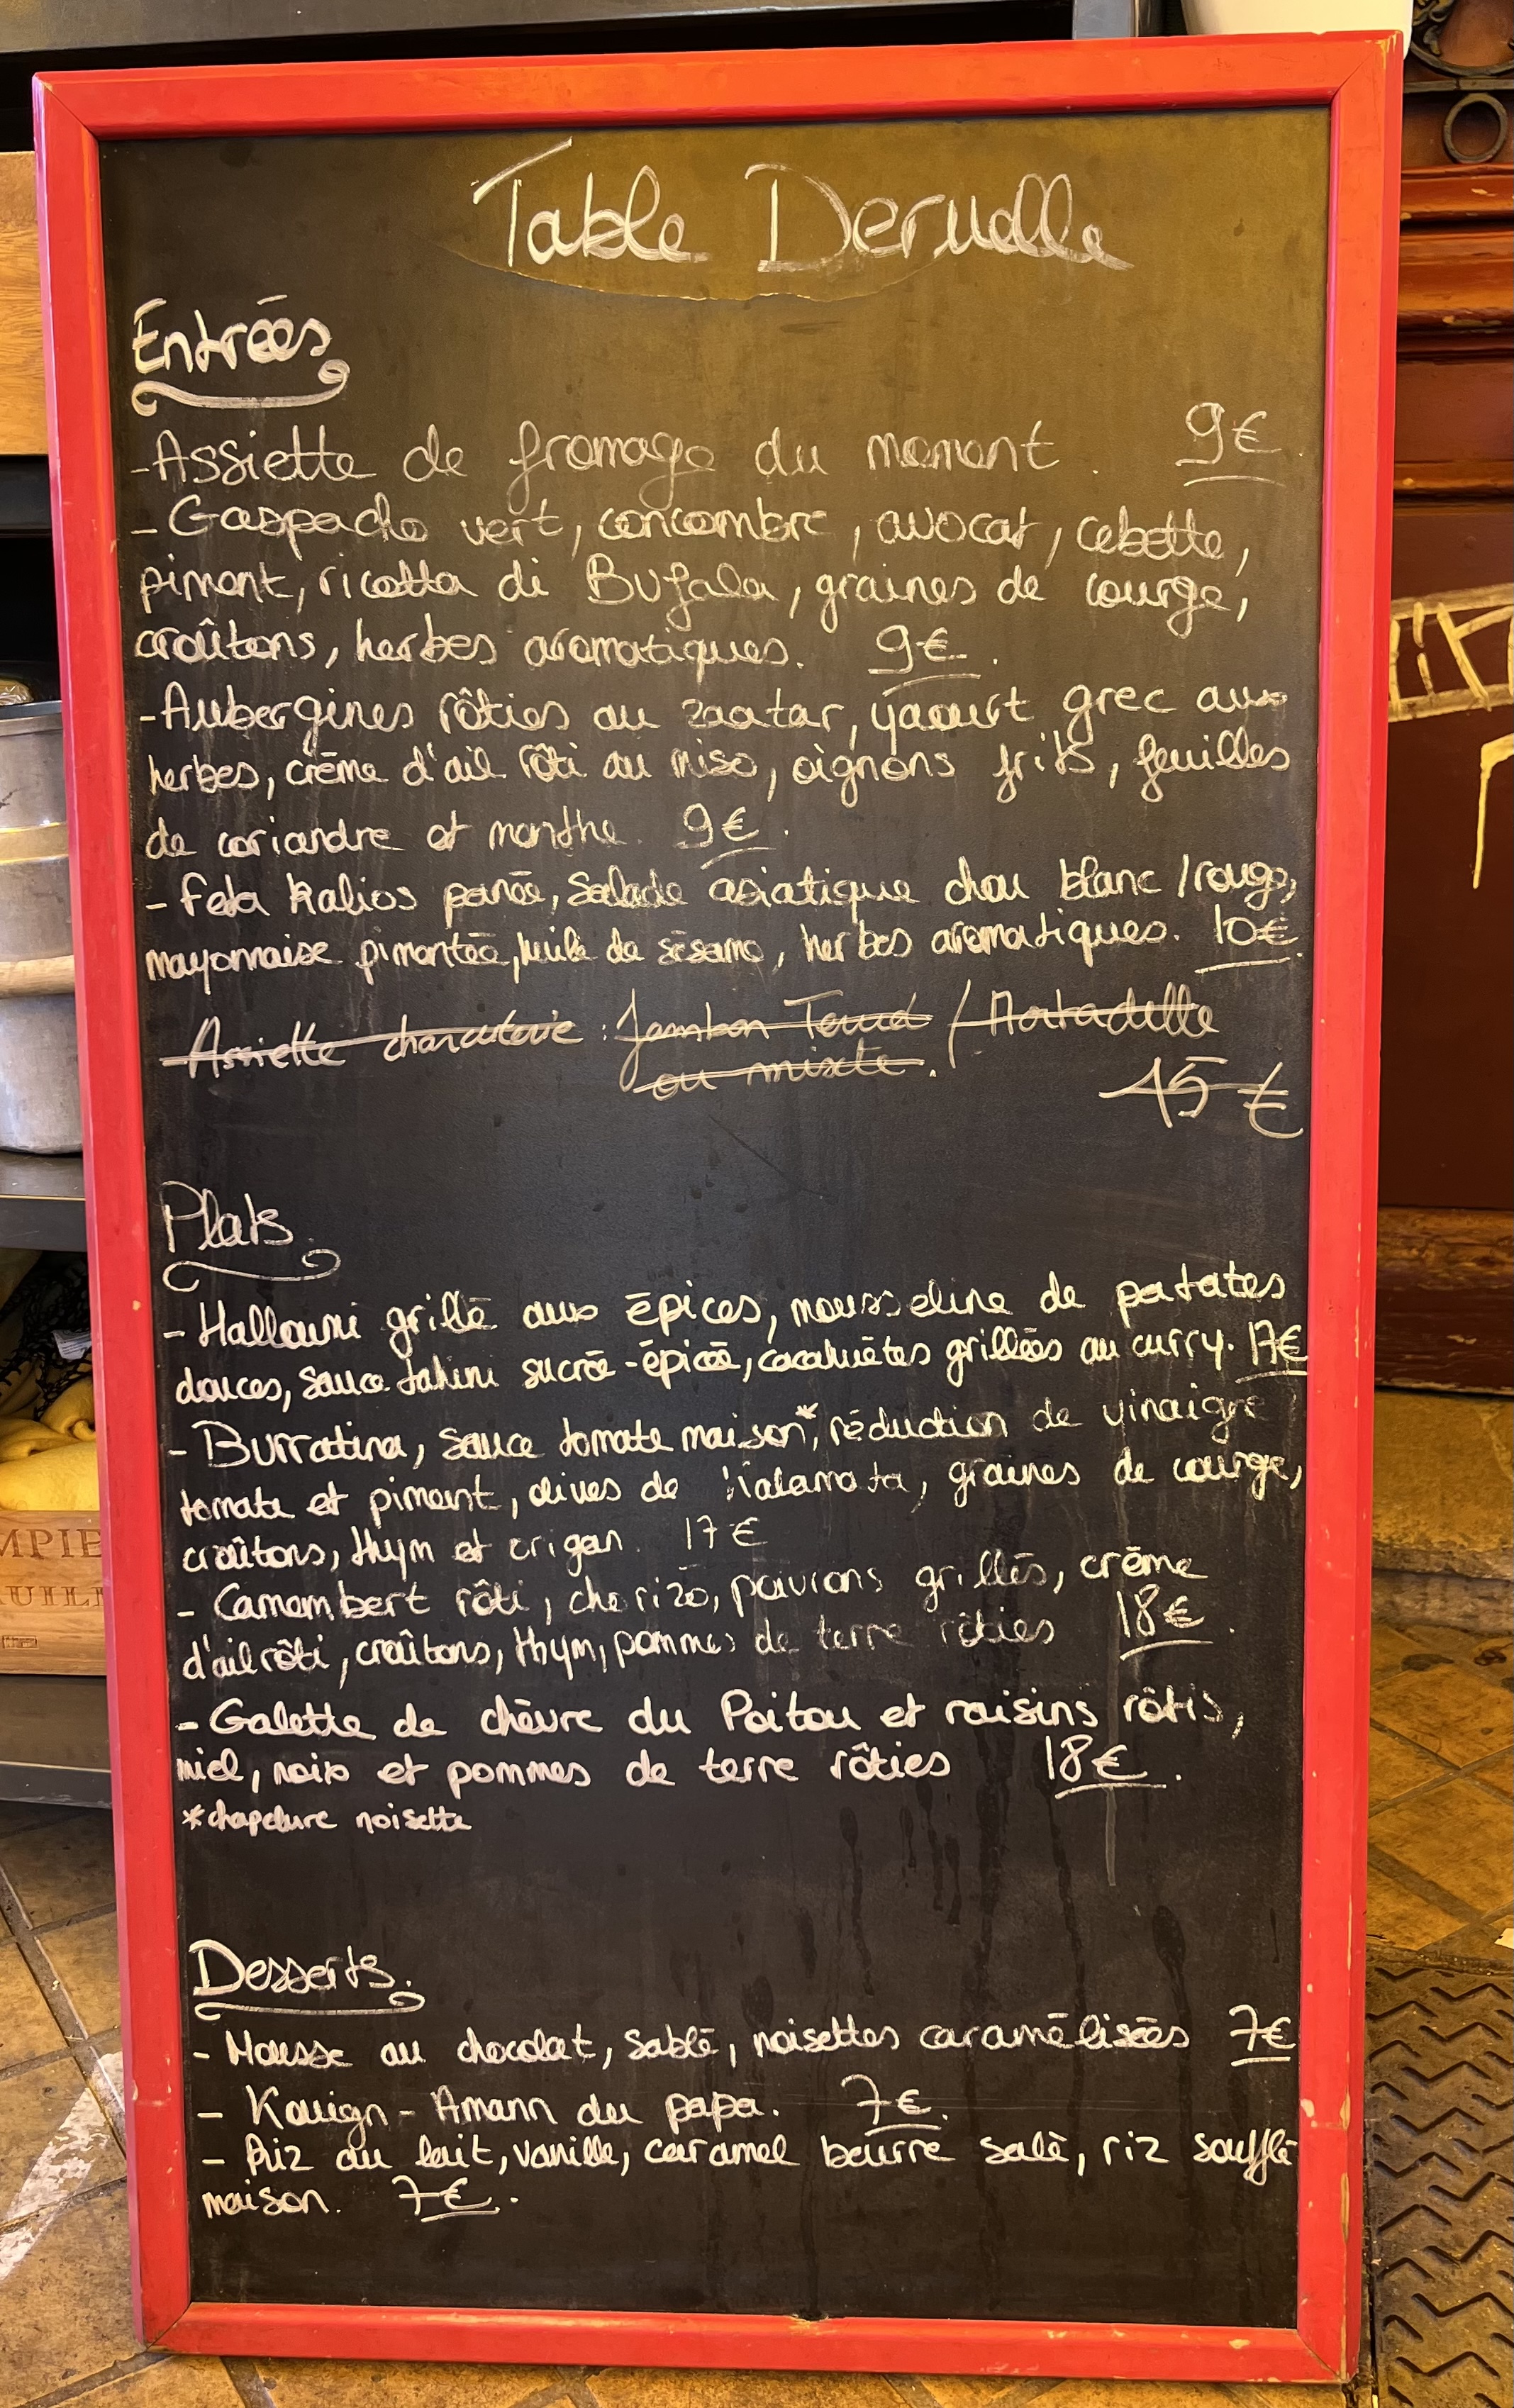 Table Deruelle
Entrées
-Assiette de fromage du moment. 9€
-Gaspacho vert, concombre, avocat, cebette,
piment, ricotta di Bufala, graines de courge,
croûtons, herbes aromatiques. 9€.
-Aubergines rôties au zaatar, yaourt grec aux
herbes, crème d'ail rôti au miso, oignons frits, feuilles
de coriandre et menthe. 9€.
- feta Kalios panée, Salade asiatique chou blanc/rouge,
mayonnaise pimentée, huile de sésame, herbes aromatiques. 10€.
-Assiette charcuterie : Jambon / Mortadelle
ou mixte.
15€
Plats.
- Halloumi grillé aux épices, mousseline de patates
douces, sauce tahini sucré-épicée, cacahuètes grillées au curry. 17€
- Burratina, sauce tomate maison*, réduction de vinaigre
tomate et piment, olives de Kalamata, graines de courge,
croûtons, thym et origan. 17€
- Camembert rôti, chorizo, poivrons grillés, crème
d'ail rôti, croûtons, thym, pommes de terre rôties 18€.
- Galette de chèvre du Poitou et raisins rôtis,
miel, noix et pommes de terre rôties 18€.
*chapelure noisette
Desserts.
- Mousse au chocolat, sablé, noisettes caramélisées 7€
- Kouign-Amann du papa. 7€.
- Riz au lait, vanille, caramel beurre salé, riz soufflé
maison. 7€.
MPIE
UILI